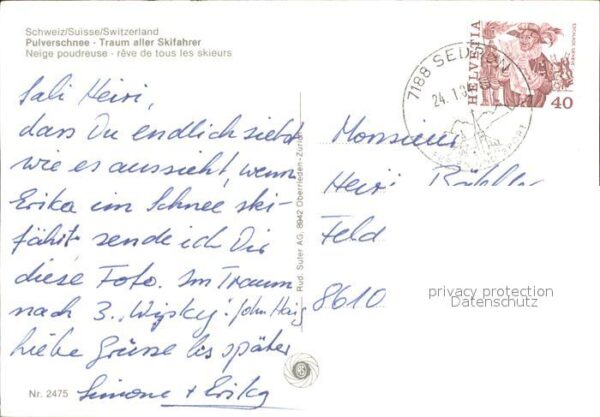 Schweiz/Suisse/Switzerland
Pulverschnee - Traum aller Skifahrer
Neige poudreuse - rêve de tous les skieurs
Sali Heiri,
dass Du endlich siehst
wie es aussieht, wenn
Erika im Schnee ski-
fährt sende ich Dir
diese Foto. Im Traum
nach 3 "Wisky". John Haig
Liebe Grüsse bis später
Simone + Erika
Nr. 2475
Rud. Suter AG, 8942 Oberrieden-Zürich
7188 SEDRUN
24.1.
HELVETIA
40
Monsieur
Heiri
Feld
8610
privacy protection
Datenschutz